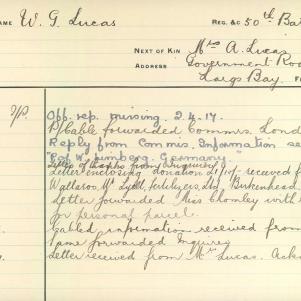 NAME W. G. Lucas REG. &C 50th Bat
NEXT OF KIN Mrs A. Lucas
ADDRESS Government Roa
Largs Bay.
Off. rep. missing. 2.4.17.
Cable forwarded Commrs. Lond
Reply from Commis. Information se
"P of W. Limberg. Germany."
Letter of thanks from Enquirer
Letter enclosing donation £1/1/- received f
Wallaroo Mt Lyell Fertilyers, Ltd, Birkenhead
Letter forwarded Miss Chomley with
for personal parcel.
Cabled information received from
Same forwarded Inquirer
Letter received from Mrs Lucas. Ackn